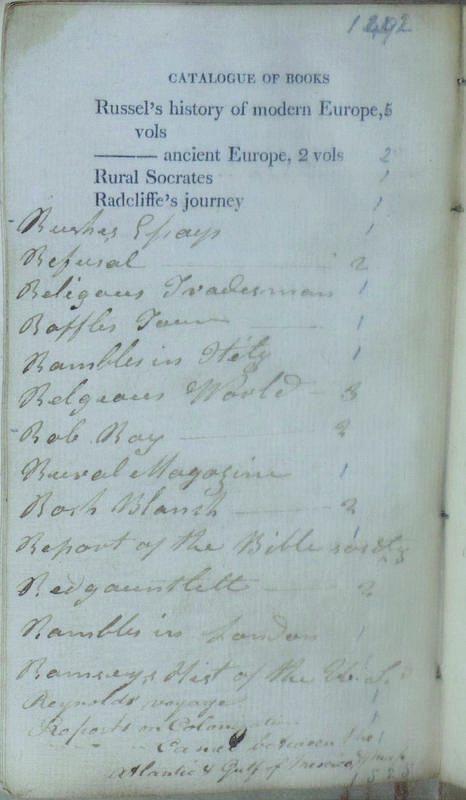 CATALOGUE OF BOOKS
Russel's history of modern Europe, 5
vols
——— ancient Europe, 2 vols 2
Rural Socrates 1
Radcliffe's journey 1
Rushes Essays 1
Refusal 2
Religous Tradesman 1
Raffles Town 1
Rambles in Itily 1
Relgeous World 3
Rob Roy 2
Rural Magazine 1
Rosh Blanch 2
Report of the Bible society
Redgauntlett 2
Rambles in London 1
Ramseys Hist of the
Reynolds voyage 1
Reports on
Canal between the
Atlantic & Gulf of Mexico